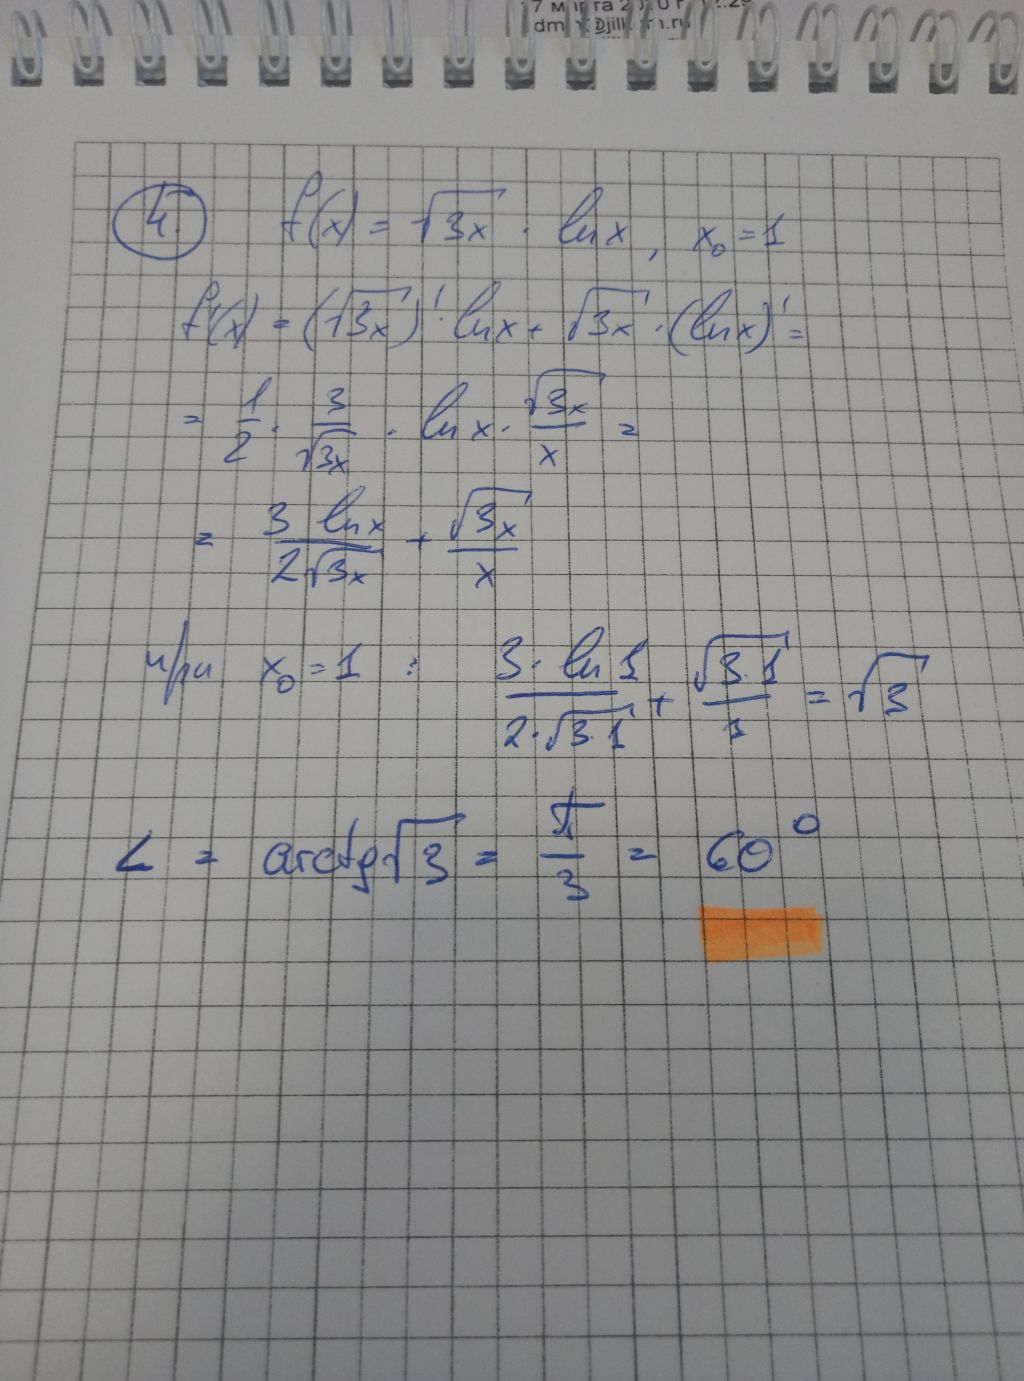 4. f(x) = √3x · ln x, x₀ = 1
f'(x) = (√3x)' · ln x + √3x · (ln x)' =
= 1/2 · 3/√3x · ln x · √3x/x =
= 3 ln x/2√3x + √3x/x
при x₀ = 1 : 3 · ln 1/2 · √3·1 + √3·1/1 = √3
∠ = arctg √3 = π/3 = 60°